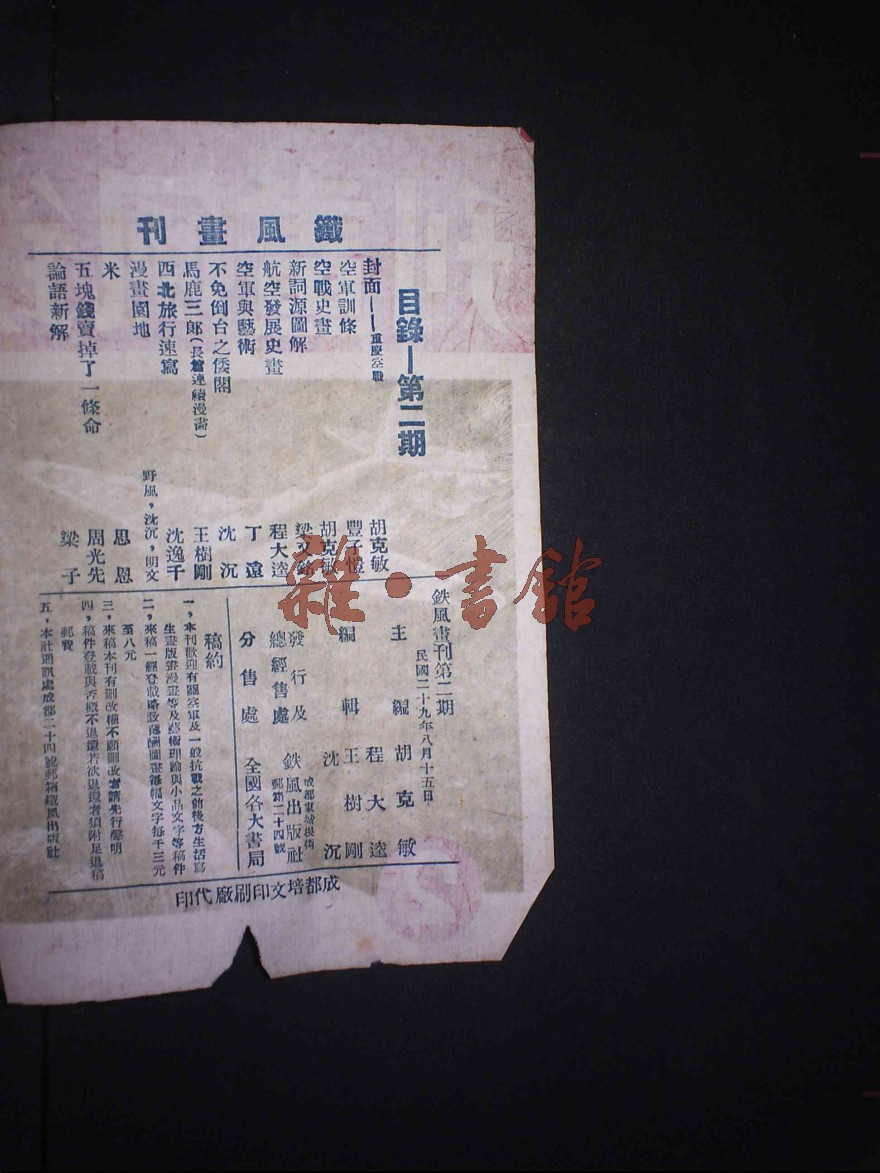 鐵風畫刊
目錄—第二期
封面——重慶空戰 胡克敏
空軍訓條 豐子愷
空戰史畫 胡克敏
新詞源圖解 梁又銘
航空發展史畫 程大逵
空軍與藝術 丁遠
不免倒台之倭閣 沈沉
馬鹿三郎(長篇連續漫畵) 王樹剛
西北旅行速寫 沈逸千
漫畫園地 野風，沈沉，明文
米 恩恩
五塊錢賣掉了一條命 周光先
論語新解 梁子
鉄風畫刊第二期
民國二十九年八月十五日
主編 胡克敏
程大逵
編輯 王樹剛
沈沉
發行及總經售處 鉄風出版社
成都東城根街
郵箱二十四號
分售處 全國各大書局
稿約
一，本刊歡迎有關空軍及一般抗戰之前後方生活寫
生畫版畫漫畫等及藝術理論與小品文字等稿件
二，來稿一經登載略致薄酬圖畫每幅文字每千三元
至八元
三，來稿本刊有刪改權不願刪改者請先行聲明
四，稿件登載與否概不退還若欲退還者須附足退稿
郵費
五，本社通訊處成都二十四號郵箱鐵風出版社
成都培文印刷廠代印
雜·書館